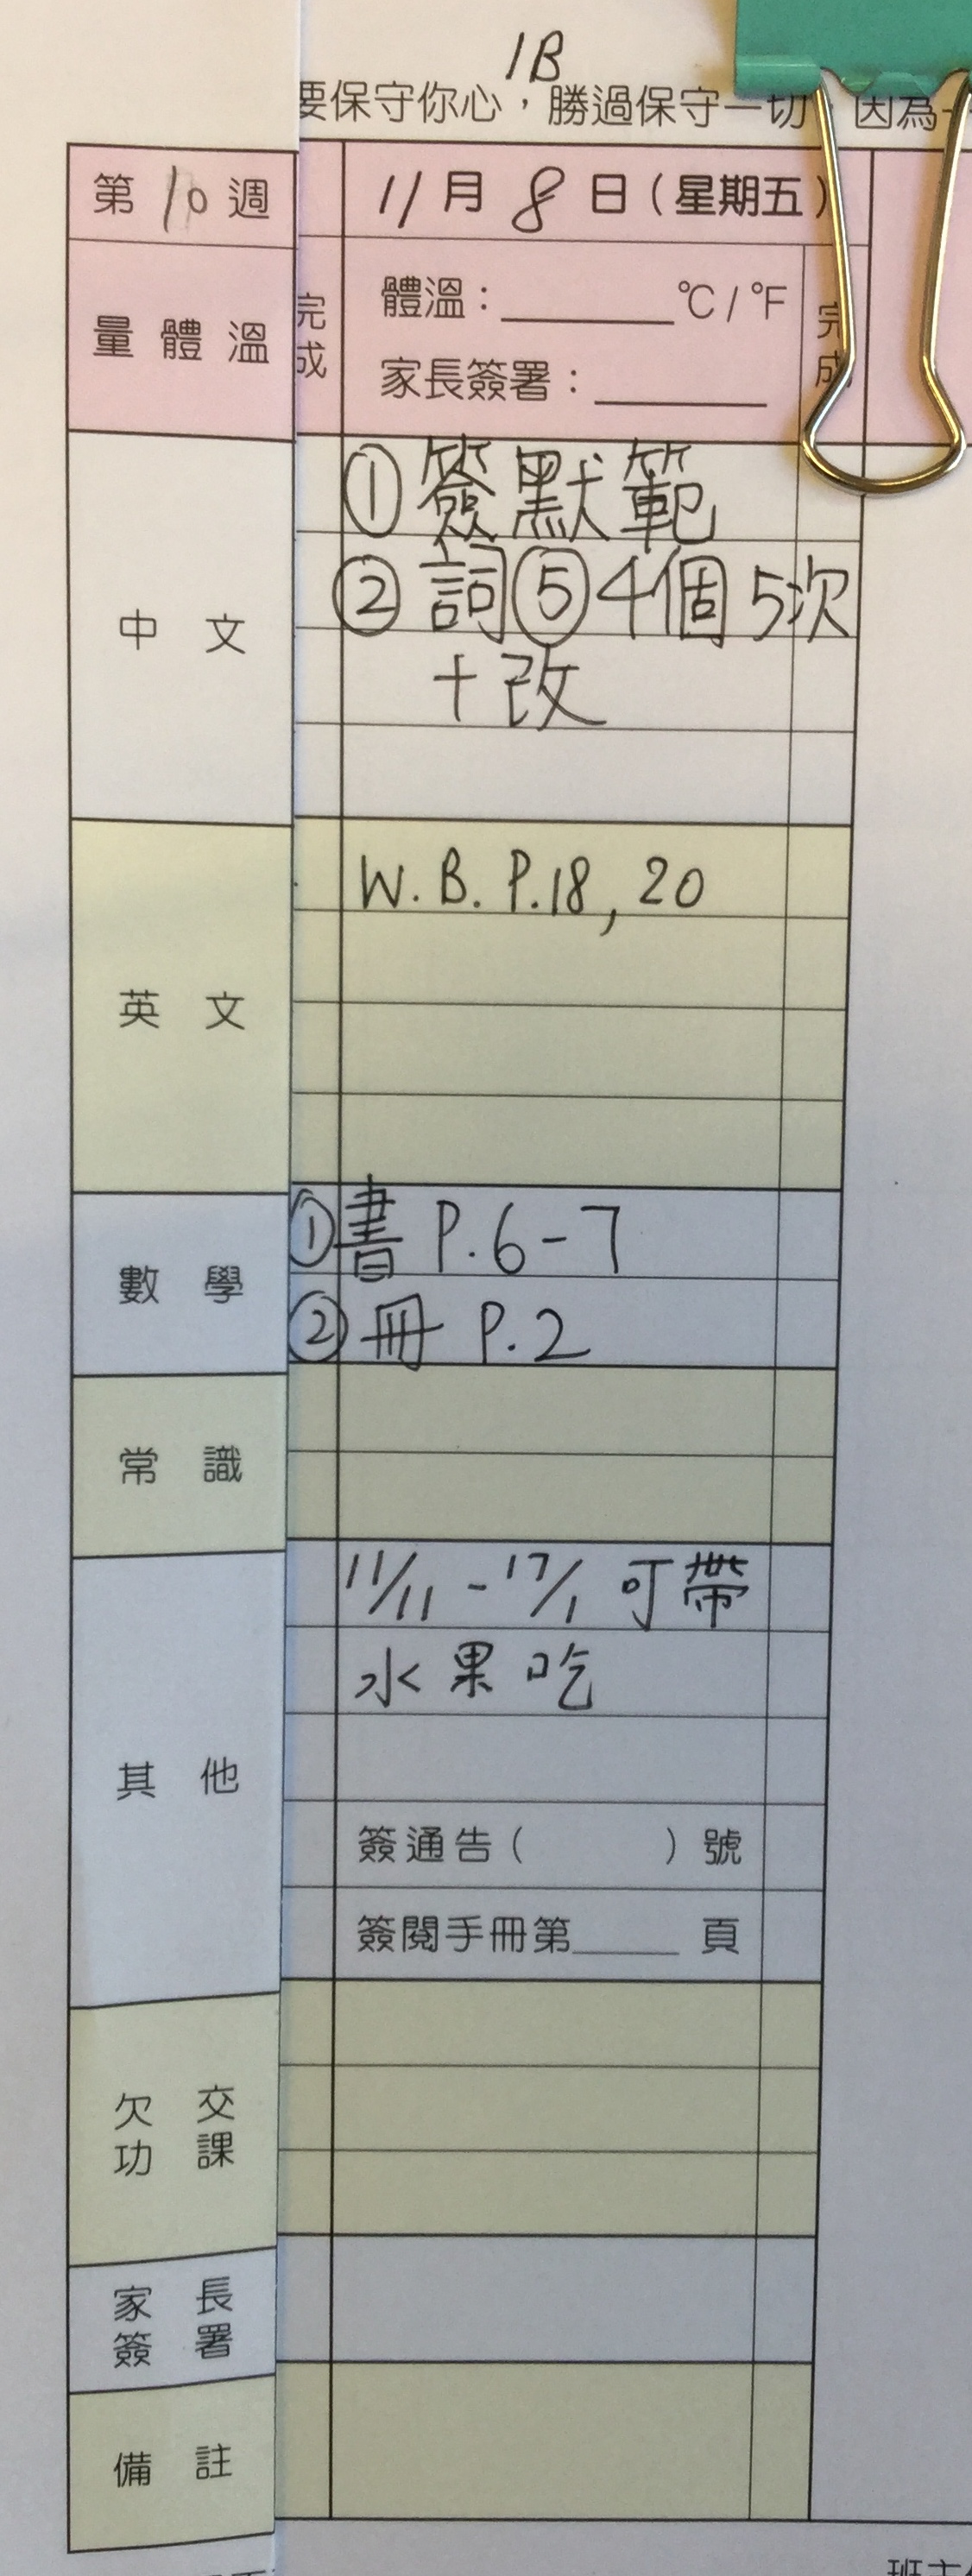 1B
要保守你心，勝過保守一切 因為
第10週 11月8日（星期五）
量體溫 完成 體溫：______°C / °F 完成
家長簽署：______
中文 ①簽默範
②詞⑤4個5次
+改
英文 W.B. P.18, 20
數學 ①書 P.6-7
②冊 P.2
常識
其他 11/11 - 17/1 可帶
水果吃
簽通告（ ）號
簽閱手冊第____頁
欠交功課
家長簽署
備註
班主